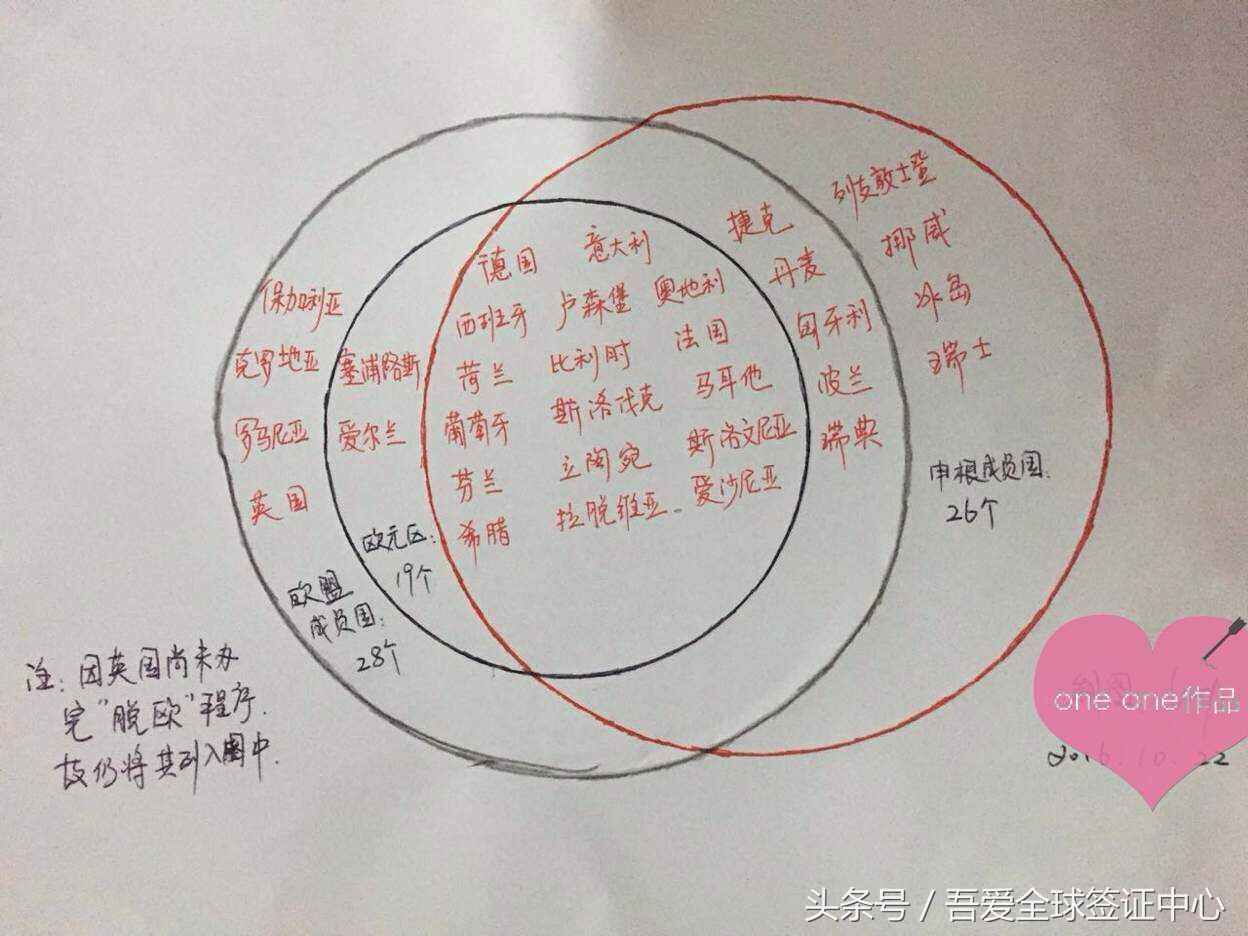 列支敦士登
捷克
挪威
德国 意大利
丹麦
保加利亚
西班牙 卢森堡 奥地利
匈牙利
冰岛
克罗地亚 塞浦路斯
荷兰 比利时 法国
波兰
瑞士
罗马尼亚 爱尔兰
葡萄牙 斯洛伐克 马耳他
瑞典
英国
芬兰 立陶宛 斯洛文尼亚
希腊 拉脱维亚 爱沙尼亚
申根成员国:
26个
欧元区:
19个
欧盟
成员国:
28个
注:因英国尚未办
完“脱欧”程序.
故仍将其列入图中.
one one作品
2016.10.22
头条号 / 吾爱全球签证中心